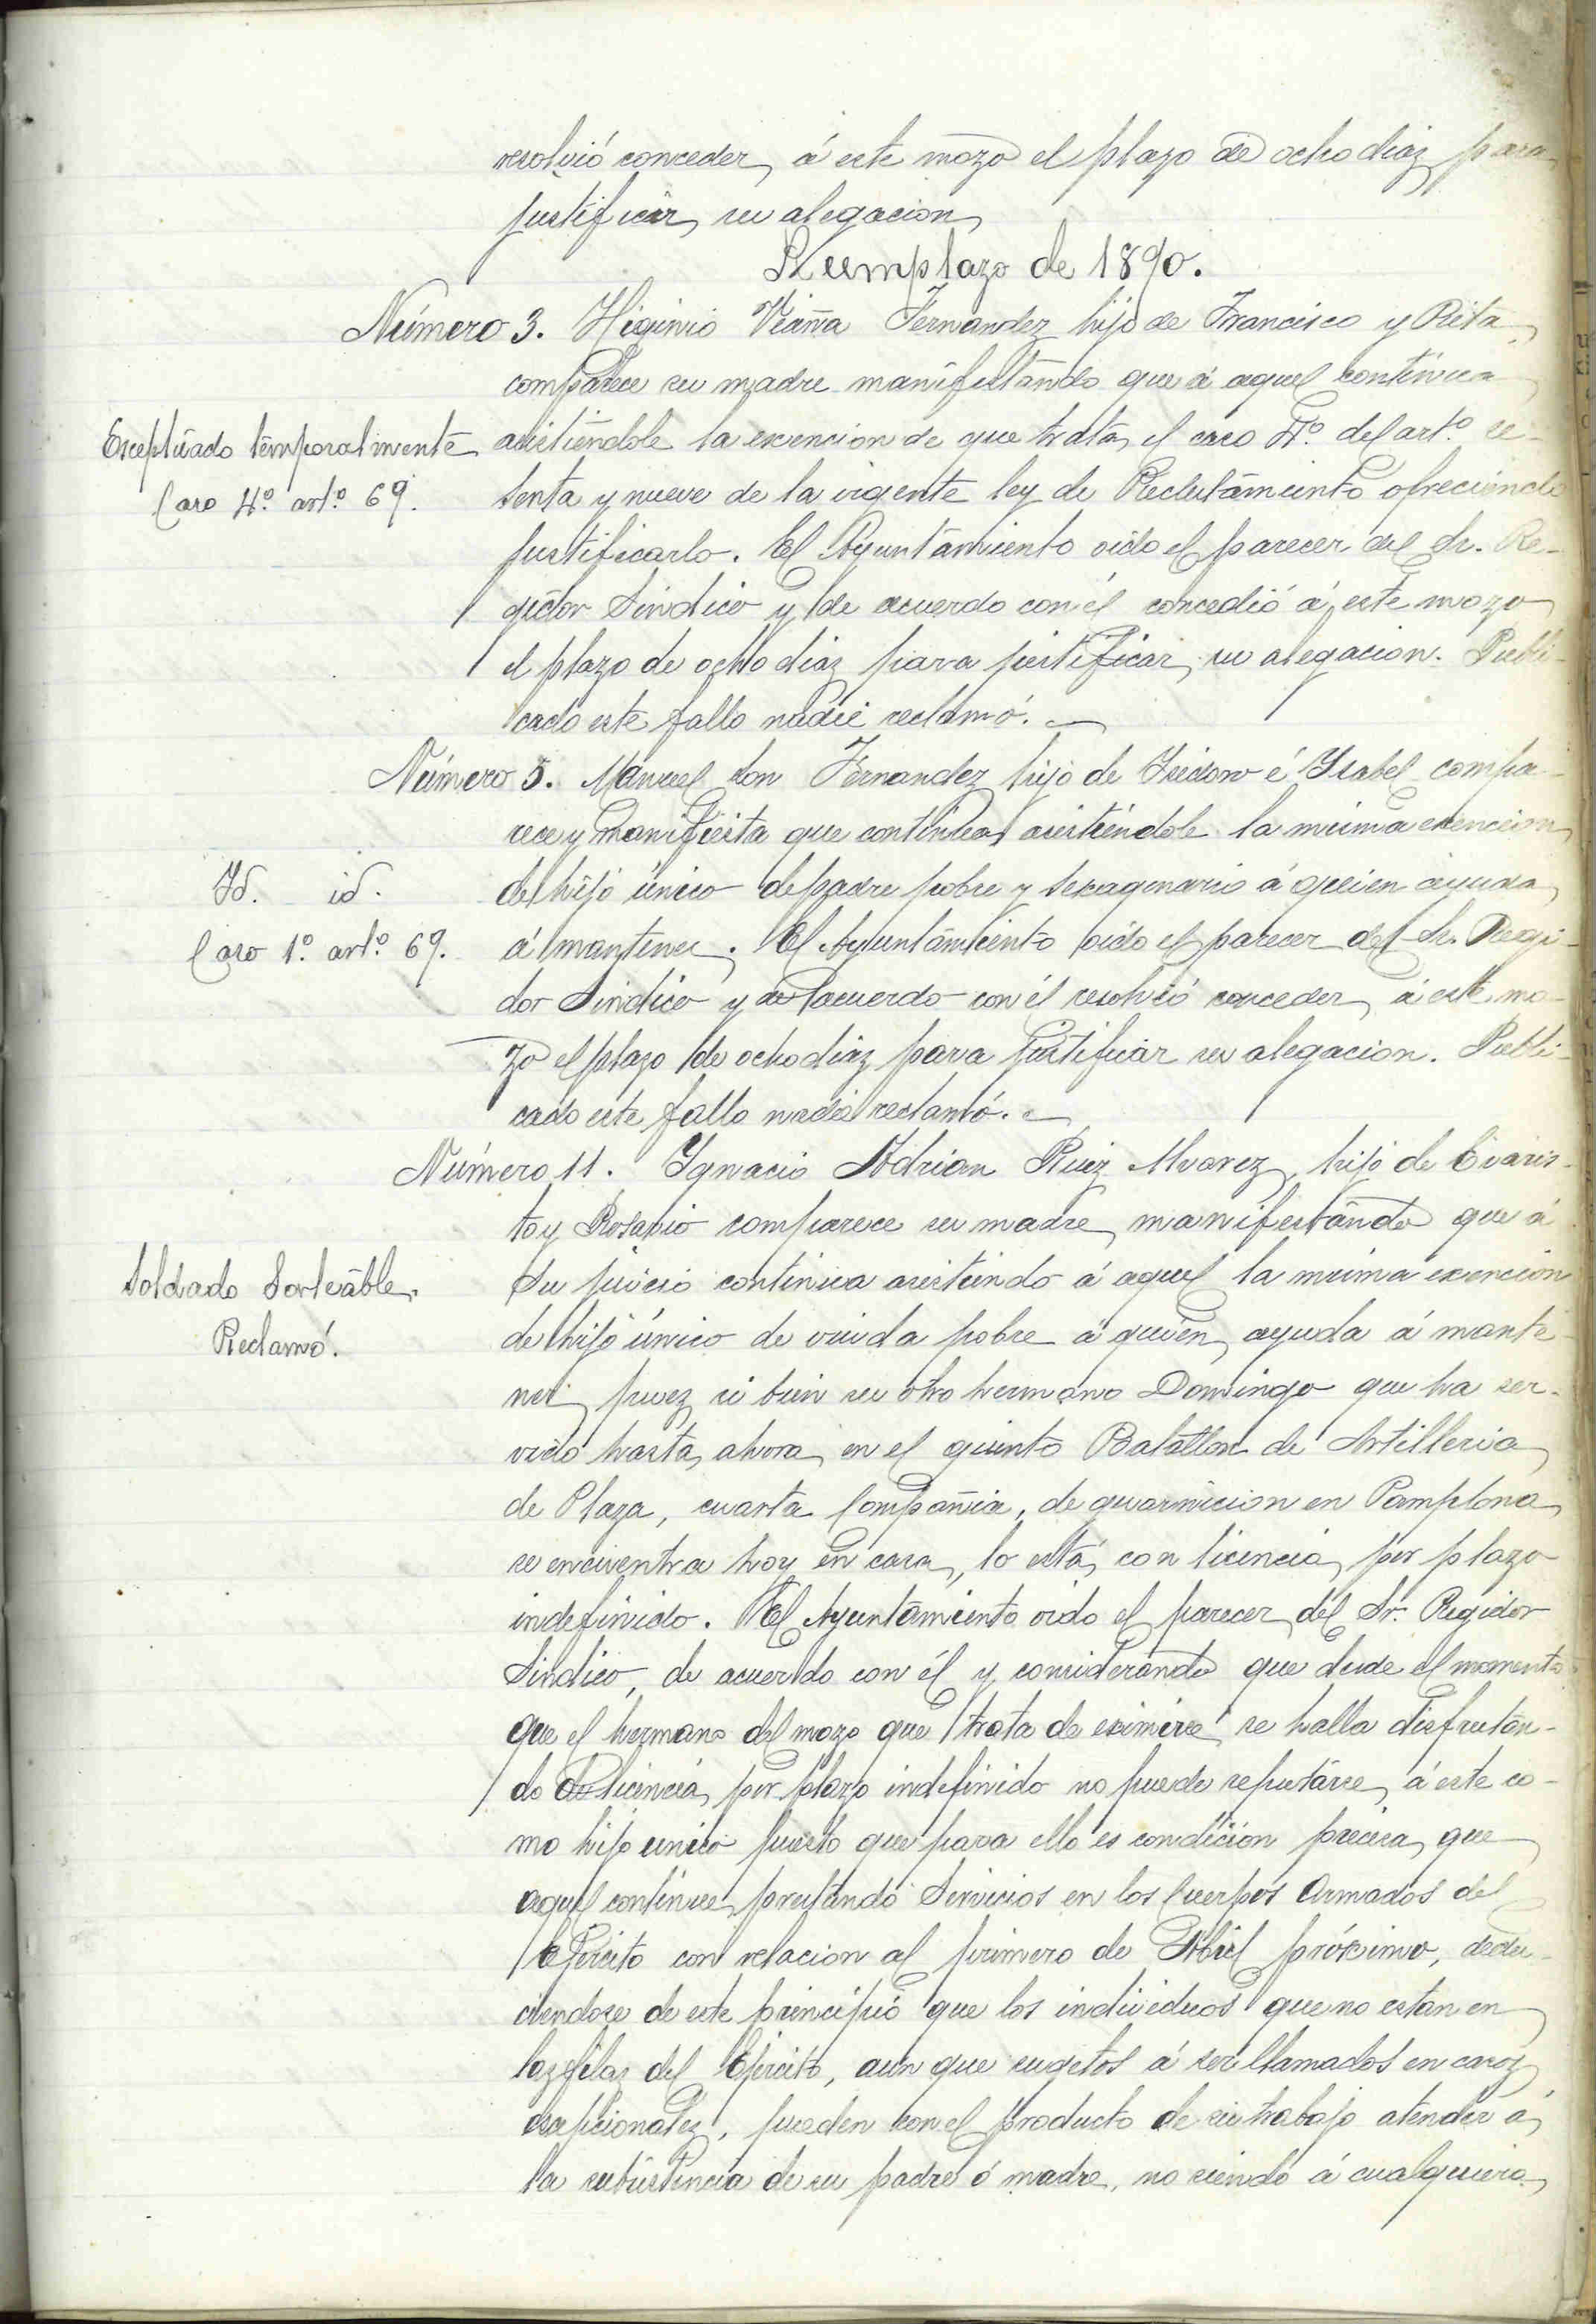 resolvió conceder á este mozo el plazo de ocho diaz para
justificar su alegacion
Reemplazo de 1890.
Número 3. Higinio Viaña Fernandez hijo de Francisco y Rita
comparece su madre manifestando que á aquel continua
Esceptuado temporalmente
Caso 4º. artº. 69.
asistiéndole la exencion de que trata el caso 4º. del artº. se-
senta y nueve de la vigente ley de Reclutamiento ofreciendo
justificarlo. El Ayuntamiento oido el parecer del Sr. Re-
gidor Sindico y de acuerdo con él concedió á este mozo
el plazo de ocho diaz para justificar su alegacion. Publi-
cado este fallo nadie reclamó.
Número 5. Manuel Fernandez hijo de Isidoro é Ysabel compa-
rece y manifiesta que continua asistiéndole la misma exencion
Yd. id.
Caso 1º. artº. 69.
de hijo único de padre pobre y sexagenario á quien ayuda
á mantener. El Ayuntamiento oido el parecer del Sr. Regi-
dor Sindico y de acuerdo con él resolvió conceder á este mo-
zo el plazo de ocho diaz para justificar su alegacion. Publi-
cado este fallo nadie reclamó.
Número 11. Ygnacio Adrian Ruiz Alvarez, hijo de Evaris-
to y Rosario comparece su madre manifestando que á
Soldado Sorteable.
Reclamó.
su juicio continua asistiendo á aquel la misma exencion
de hijo único de viuda pobre á quien ayuda á mante-
ner, puez si bien su otro hermano Domingo que ha ser-
vido hasta ahora en el quinto Batallon de Artilleria
de Plaza, cuarta Compañia, de guarnicion en Pamplona
se encuentra hoy en casa, lo está con licencia por plazo
indefinido. El Ayuntamiento oido el parecer del Sr. Regidor
Sindico, de acuerdo con él y considerando que desde el momento
que el hermano del mozo que trata de eximirse se halla disfrutan-
do de licencia por plazo indefinido no puede reputarse á este co-
mo hijo único puesto que para ello es condición precisa que
aquel continue prestando Servicios en los Cuerpos Armados del
Ejército con relacion al primero de Abril próximo, dedu-
ciendose de este principio que los individuos que no estan en
laz filaz del Ejército, aun que sugetos á ser llamados en casoz
excepcionalez, pueden con el producto de su trabajo atender á
la subsistencia de su padre ó madre, no siendo á cualquiera